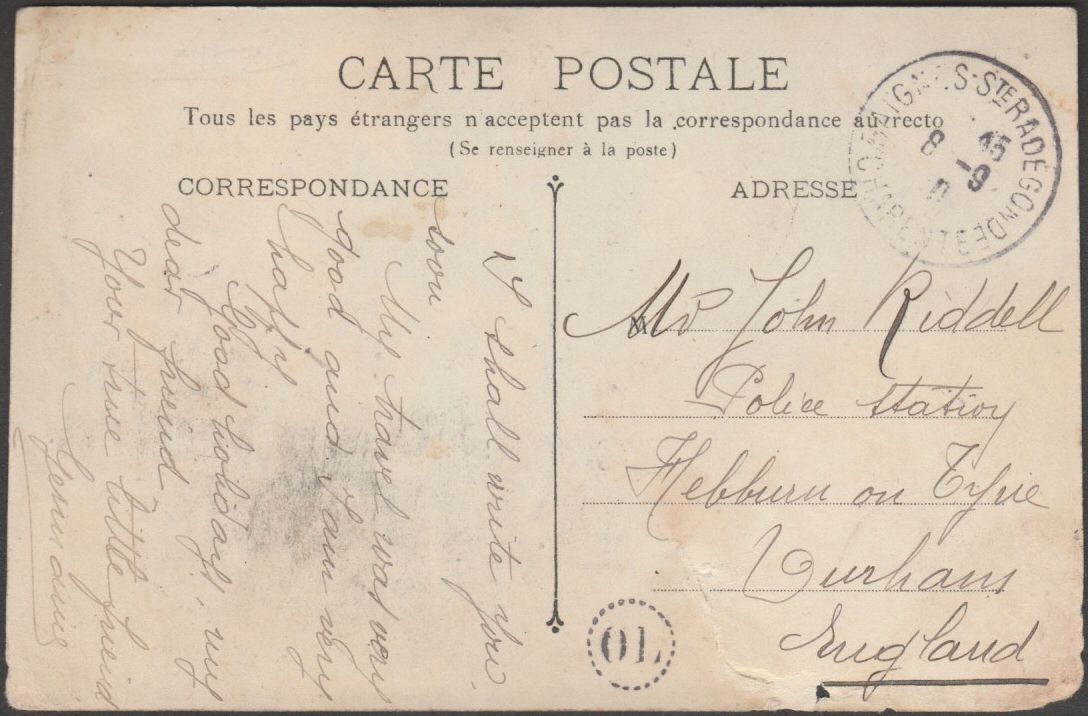 CARTE POSTALE
Tous les pays étrangers n'acceptent pas la correspondance au recto
(Se renseigner à la poste)
CORRESPONDANCE
ADRESSE
STE RADEGONDE
CHARENTE
8 15
-9
I shall write you
soon
My travel was very
good and I am very
happy
Good holidays, my
dear friend
Your true little friend
Germaine
Mr John Riddell
Police Station
Hebburn on Tyne
Durham
England
OL